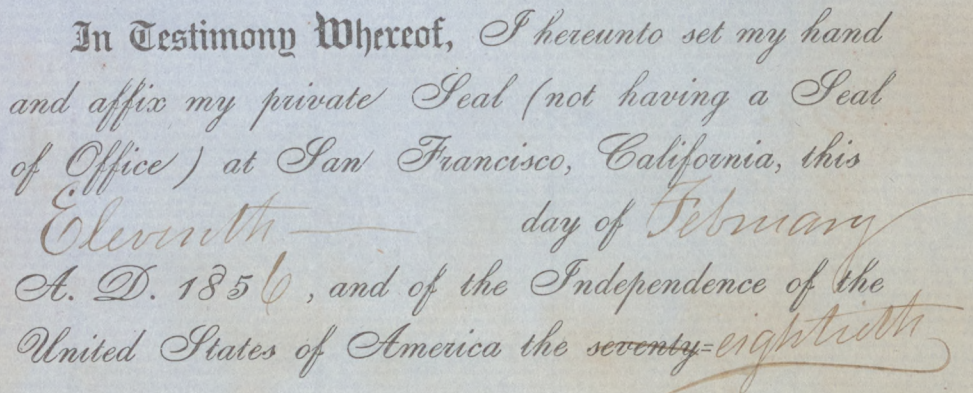 In Testimony Whereof, I hereunto set my hand
and affix my private Seal (not having a Seal
of Office) at San Francisco, California, this
Eleventh day of February
A. D. 1856, and of the Independence of the
United States of America the seventy=eightieth